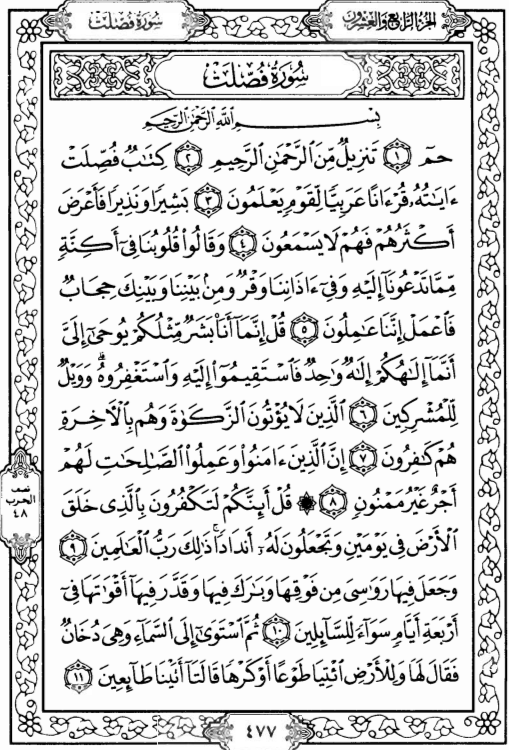 سُورَةُ فُصِّلَتْ
الجُزْءُ الرَّابِعُ وَالعِشْرُونَ
سُورَةُ فُصِّلَتْ
بِسْمِ ٱللَّهِ ٱلرَّحْمَٰنِ ٱلرَّحِيمِ
حمٓ ١ تَنزِيلٌ مِّنَ ٱلرَّحْمَٰنِ ٱلرَّحِيمِ ٢ كِتَٰبٌ فُصِّلَتْ
ءَايَٰتُهُۥ قُرْءَانًا عَرَبِيًّا لِّقَوْمٍ يَعْلَمُونَ ٣ بَشِيرًا وَنَذِيرًا فَأَعْرَضَ
أَكْثَرُهُمْ فَهُمْ لَا يَسْمَعُونَ ٤ وَقَالُوا۟ قُلُوبُنَا فِىٓ أَكِنَّةٍ
مِّمَّا تَدْعُونَآ إِلَيْهِ وَفِىٓ ءَاذَانِنَا وَقْرٌ وَمِنۢ بَيْنِنَا وَبَيْنِكَ حِجَابٌ
فَٱعْمَلْ إِنَّنَا عَٰمِلُونَ ٥ قُلْ إِنَّمَآ أَنَا۠ بَشَرٌ مِّثْلُكُمْ يُوحَىٰٓ إِلَىَّ
أَنَّمَآ إِلَٰهُكُمْ إِلَٰهٌ وَٰحِدٌ فَٱسْتَقِيمُوٓا۟ إِلَيْهِ وَٱسْتَغْفِرُوهُ ۗ وَوَيْلٌ
لِّلْمُشْرِكِينَ ٦ ٱلَّذِينَ لَا يُؤْتُونَ ٱلزَّكَوٰةَ وَهُم بِٱلْءَاخِرَةِ
هُمْ كَٰفِرُونَ ٧ إِنَّ ٱلَّذِينَ ءَامَنُوا۟ وَعَمِلُوا۟ ٱلصَّٰلِحَٰتِ لَهُمْ
أَجْرٌ غَيْرُ مَمْنُونٍ ٨ ۞ قُلْ أَئِنَّكُمْ لَتَكْفُرُونَ بِٱلَّذِى خَلَقَ
ٱلْأَرْضَ فِى يَوْمَيْنِ وَتَجْعَلُونَ لَهُۥٓ أَندَادًا ۚ ذَٰلِكَ رَبُّ ٱلْعَٰلَمِينَ ٩
وَجَعَلَ فِيهَا رَوَٰسِىَ مِن فَوْقِهَا وَبَٰرَكَ فِيهَا وَقَدَّرَ فِيهَآ أَقْوَٰتَهَا فِىٓ
أَرْبَعَةِ أَيَّامٍ سَوَآءً لِّلسَّآئِلِينَ ١٠ ثُمَّ ٱسْتَوَىٰٓ إِلَى ٱلسَّمَآءِ وَهِىَ دُخَانٌ
فَقَالَ لَهَا وَلِلْأَرْضِ ٱئْتِيَا طَوْعًا أَوْ كَرْهًا قَالَتَآ أَتَيْنَا طَآئِعِينَ ١١
نصف
الحزب
٤٨
٤٧٧